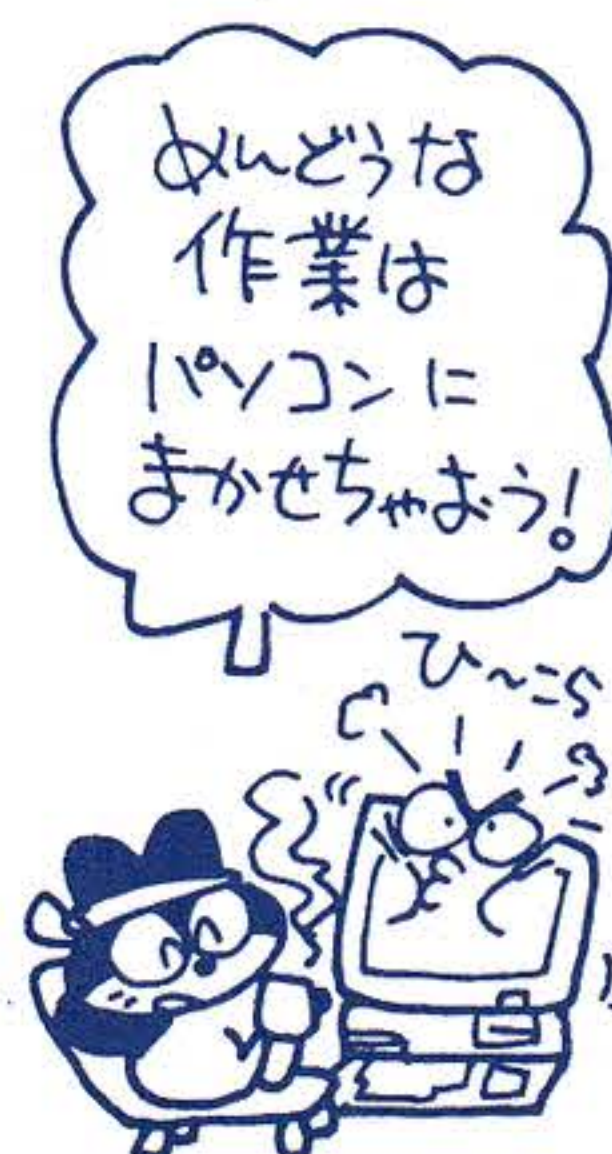 めんどうな
作業は
パソコンに
まかせちゃおう!
ひ〜こら